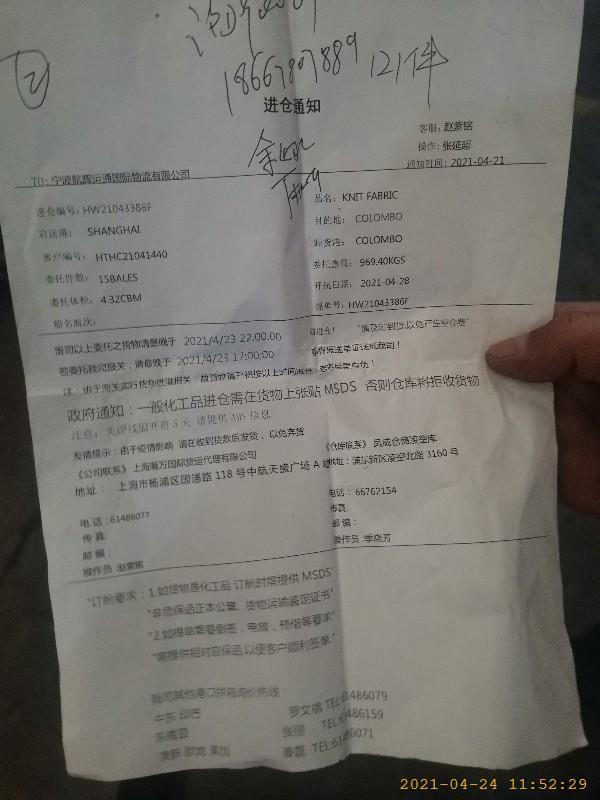 18667807889 121件
进仓通知
客服: 赵紫铭
操作: 张延超
TO: 宁波航赛运通国际物流有限公司
通知时间: 2021-04-21
进仓编号: HW21043386F
品名: KNIT FABRIC
启运港: SHANGHAI
目的地: COLOMBO
客户编号: HTHC21041440
卸货港: COLOMBO
委托件数: 15BALES
委托重量: 969.40KGS
委托体积: 4.32CBM
开航日期: 2021-04-28
船名航次:
提单号: HW21043386F
贵司以上委托之货物请最晚于 2021/4/23 22:00.00
前进仓! "请及时到货,以免产生空仓费"
若委托我司报关,请最晚于 2021/4/23 17:00.00
注: 由于海关实行货物进港报关,故货物请严格按以上时间
政府通知:一般化工品进仓需在货物上张贴 MSDS 否则仓库将拒收货物
注意: 美线开前 5 天 请提供 AMS 信息
友情提示:由于疫情影响 请在收到货款后发货,以免弃货
《公司联系》上海瀚万国际货运代理有限公司
《仓库联系》 凤成仓储凌空库
地址: 上海市杨浦区国通路 118 号中航天盛广场 A
地址: 浦东新区凌空北路 3160 号
电话: 61486077
电话: 66762154
传真:
传真:
邮编:
邮编:
操作员: 赵紫铭
操作员: 季晓芳
"订舱要求:1.如货物是化工品 订舱时需提供 MSDS"
"非危保函正本公章、货物运输鉴定证书"
"2.如提单需要倒签,电放,预借等要求"
"需提供相对应保函以便客户顺利签单."
我司其他港口拼箱询价热线:
中东 印巴 罗文祺 TEL:61486079
东南亚 张丽 TEL:61486159
澳新 欧地 美加 姜磊 TEL:61486071
2021-04-24 11:52:29